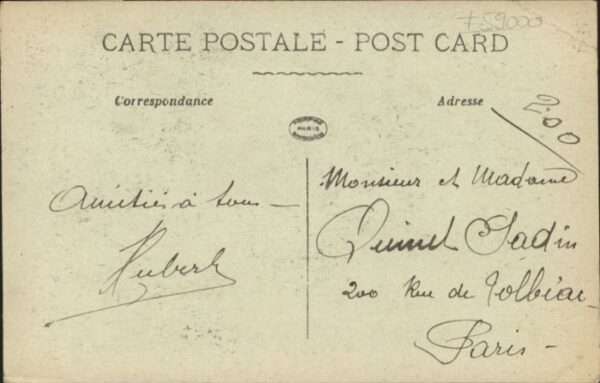 F59000
CARTE POSTALE - POST CARD
Correspondance
Adresse
2.00
PARIS
Amitiés à tous -
Hubert
Monsieur et Madame
Quinet Sadin
200 Rue de Tolbiac
Paris -